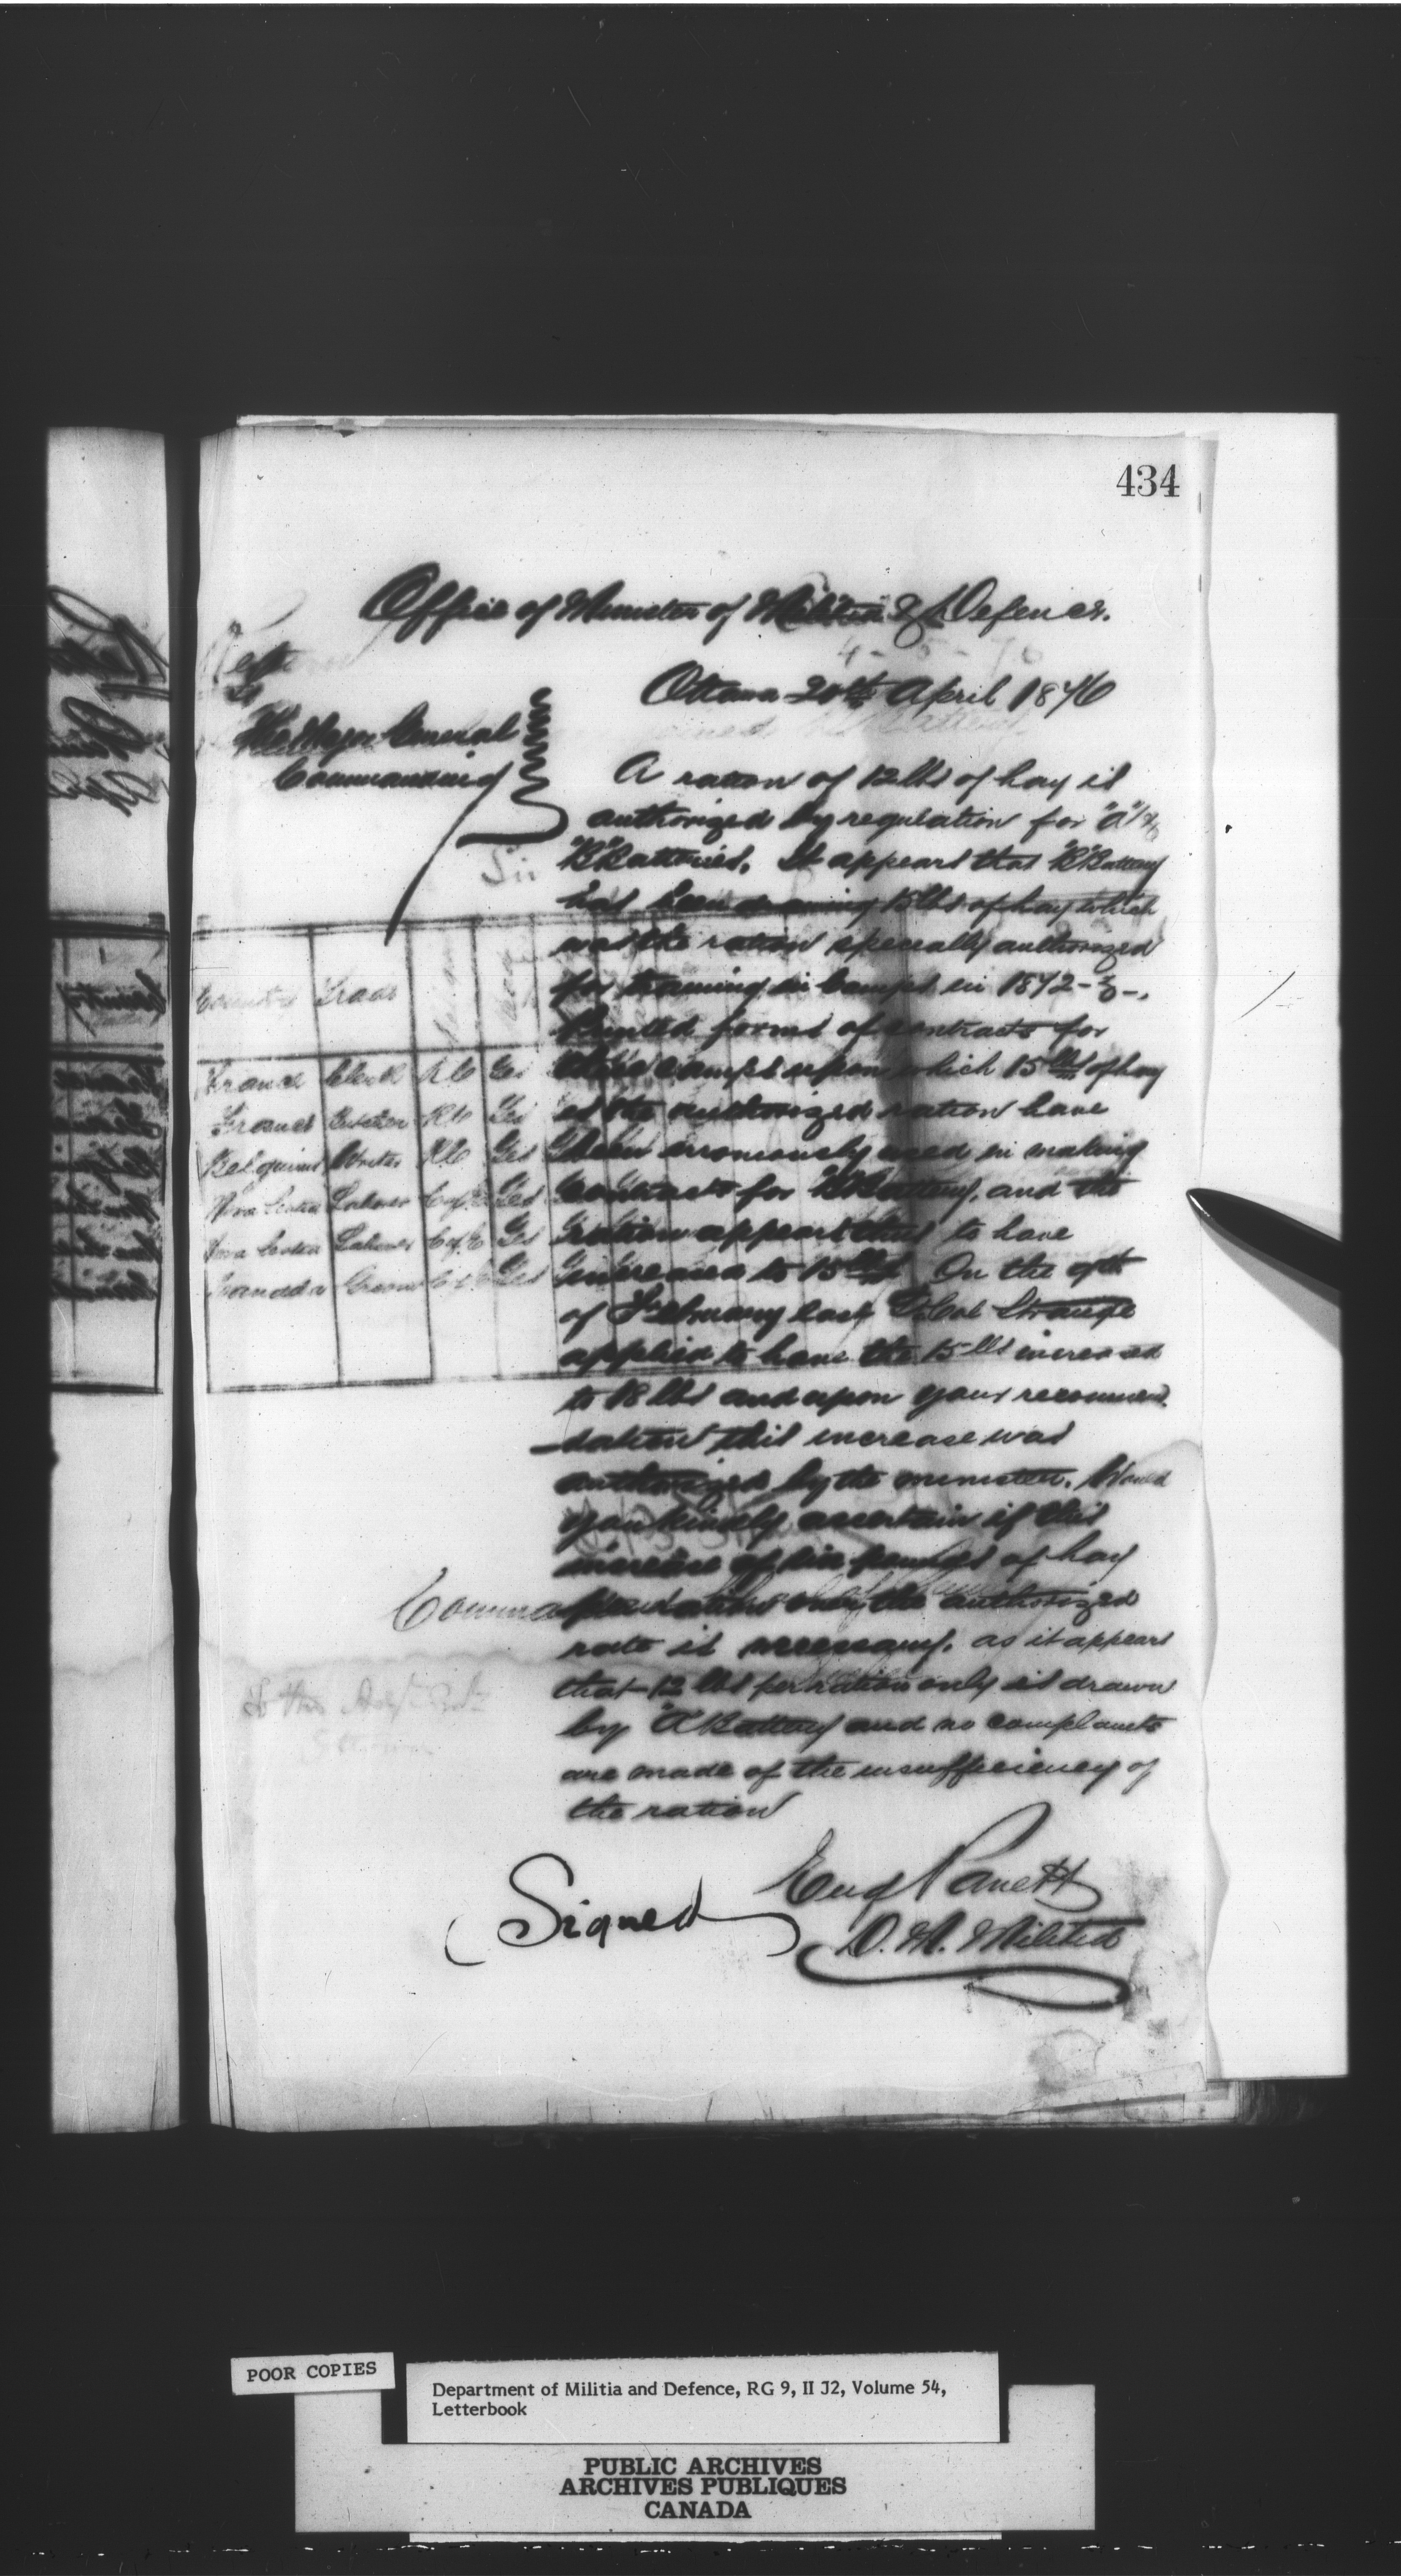 434
Office of Minister of Militia & Defence.
Ottawa 20th April 1876
The Major General
Commanding
A ration of 12 lbs of hay is
authorized by regulation for "A" &
"B" Batteries. It appears that "B" Battery
has been drawing 15 lbs of hay which
was the ration specially authorized
for training in Camps in 1872-3-.
Printed forms of contracts for
these camps upon which 15 lbs of hay
is the authorized ration have
been erroneously used in making
Contracts for "B" Battery, and the
ration appears thus to have
increased to 15 lbs On the 9th
of February last Lt Col Strange
applied to have the 15 lbs increased
to 18 lbs and upon your recommen
-dation this increase was
authorized by the minister. Would
you kindly ascertain if this
increase of six pounds of hay
per ration over the authorized
rate is necessary, as it appears
that 12 lbs per ration only is drawn
by "A" Battery and no complaints
are made of the insufficiency of
the ration
Signed Eug Panet
D. M. Militia
Sir
Country Trade
France Clerk R C Yes
France R C Yes
Belgium Writer R C Yes
Nova Scotia Laborer C of E Yes
Nova Scotia Laborer C of E Yes
Canada Groom Yes
POOR COPIES
Department of Militia and Defence, RG 9, II J2, Volume 54,
Letterbook
PUBLIC ARCHIVES
ARCHIVES PUBLIQUES
CANADA